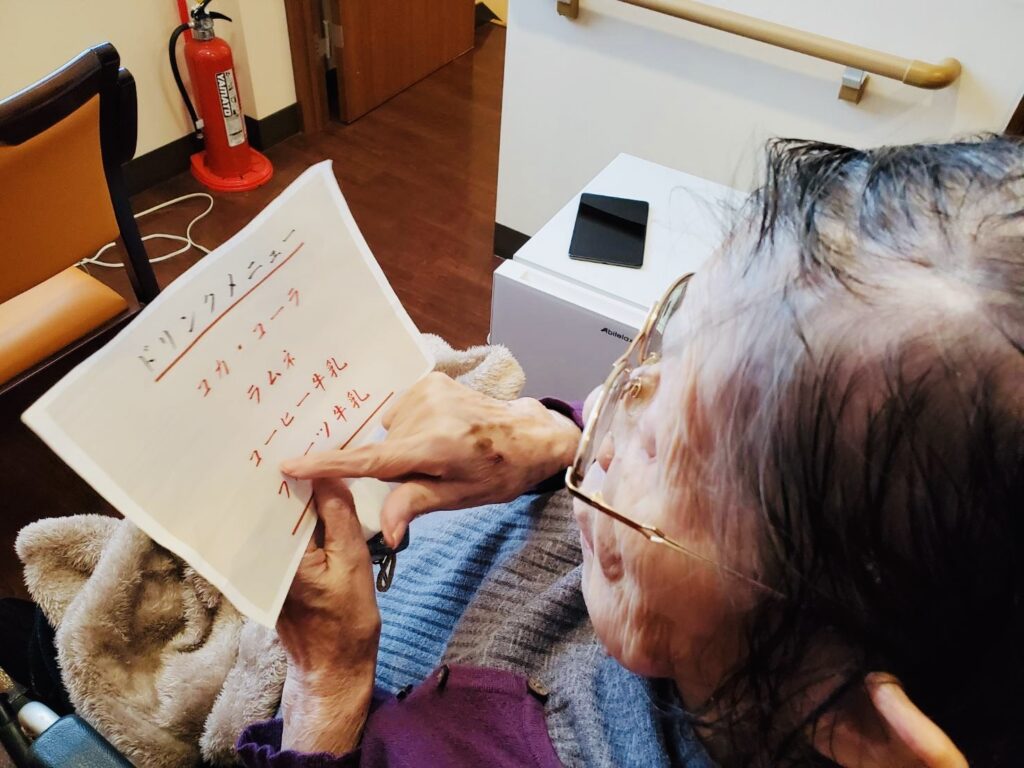 ドリンクメニュー
コカ・コーラ
ラムネ
コーヒー牛乳
ーツ牛乳
YAMATO
Abitelax